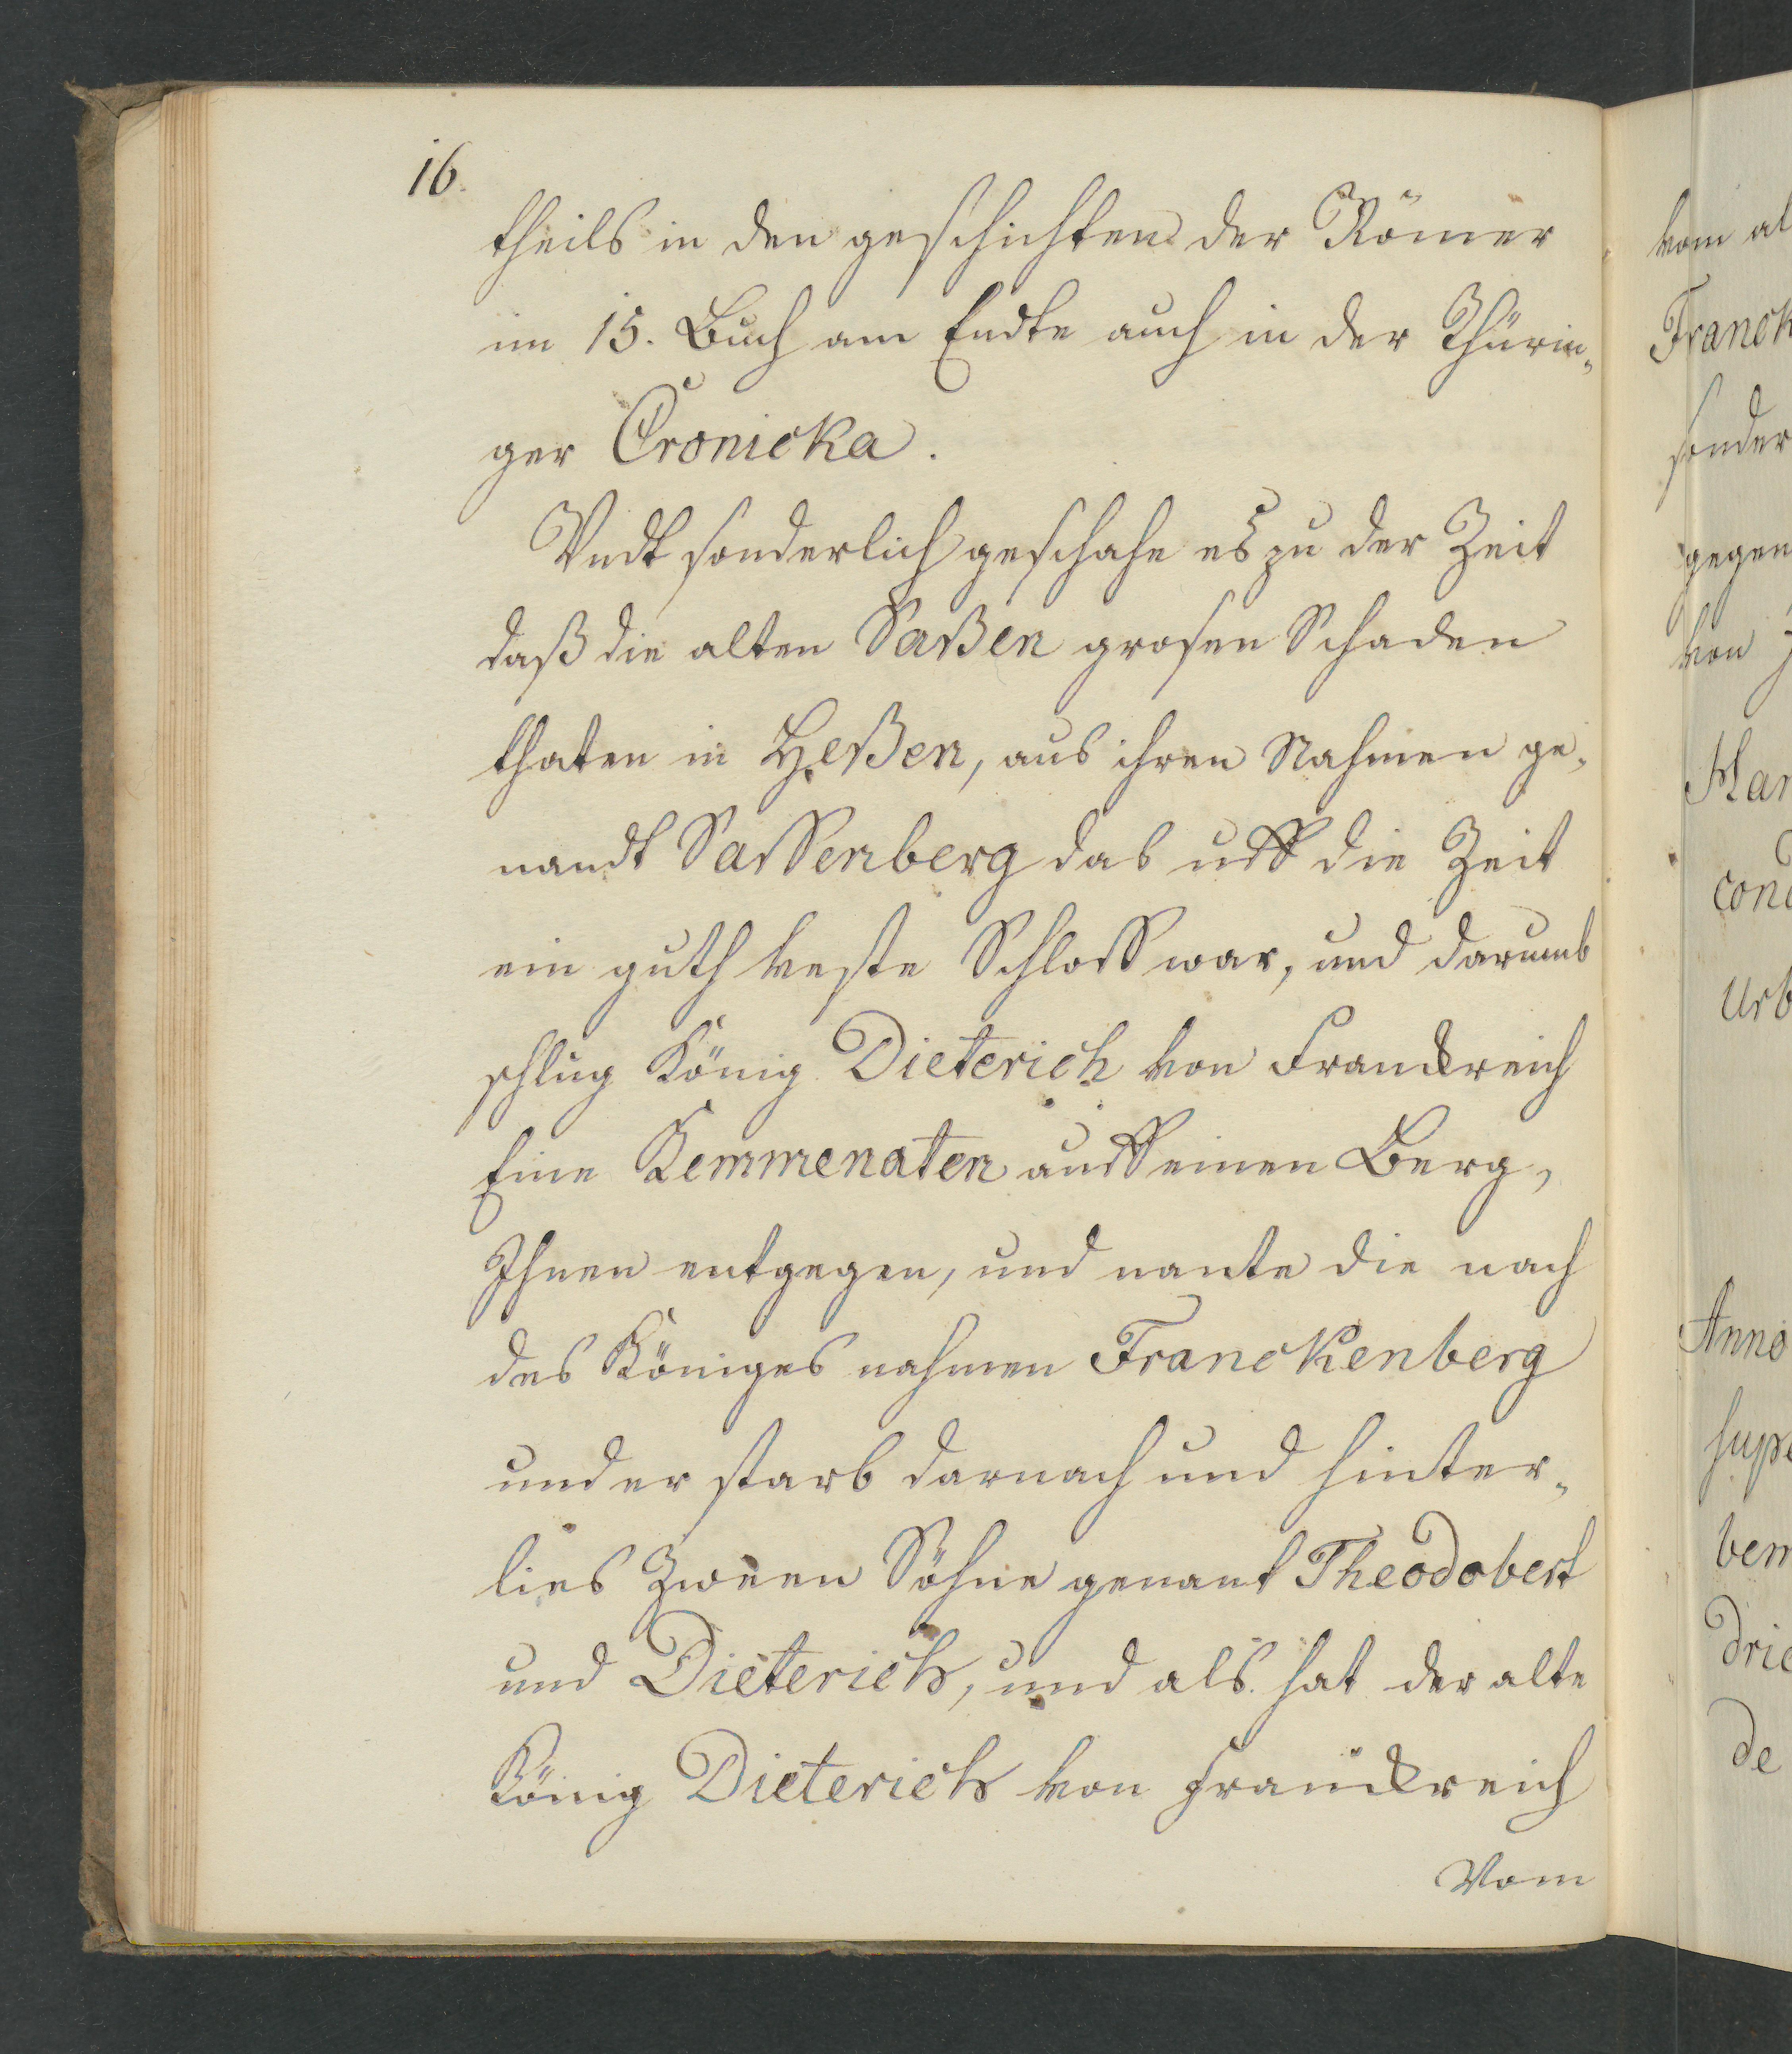 16.
theils in den geschichten der Römer
im 15. Buch am Endte auch in der Thürin„
ger Cronicka.
Vndt sonderlich geschahe es zu der Zeit
daß die alten Saßen grosen Schaden
thaten in Heßen, aus ihren Nahmen ge„
nandt Sassenberg das uff die Zeit
ein guth veste Schloss war, und darumb
schlug König Dieterich von Franckreich
Eine Kemmenaten auff einen Berg,
Ihnen entgegen, und nante die nach
des Königes nahmen Franckenberg
und er starb darnach und hinter„
lies Zween Söhne genant Theodobert
und Dieterich, und als hat der alte
König Dieterich von Franckreich
Vom
vom al
Franck
sonder
gegen
von
Mar
conc
Urb
Anno
supe
bem
drie
de